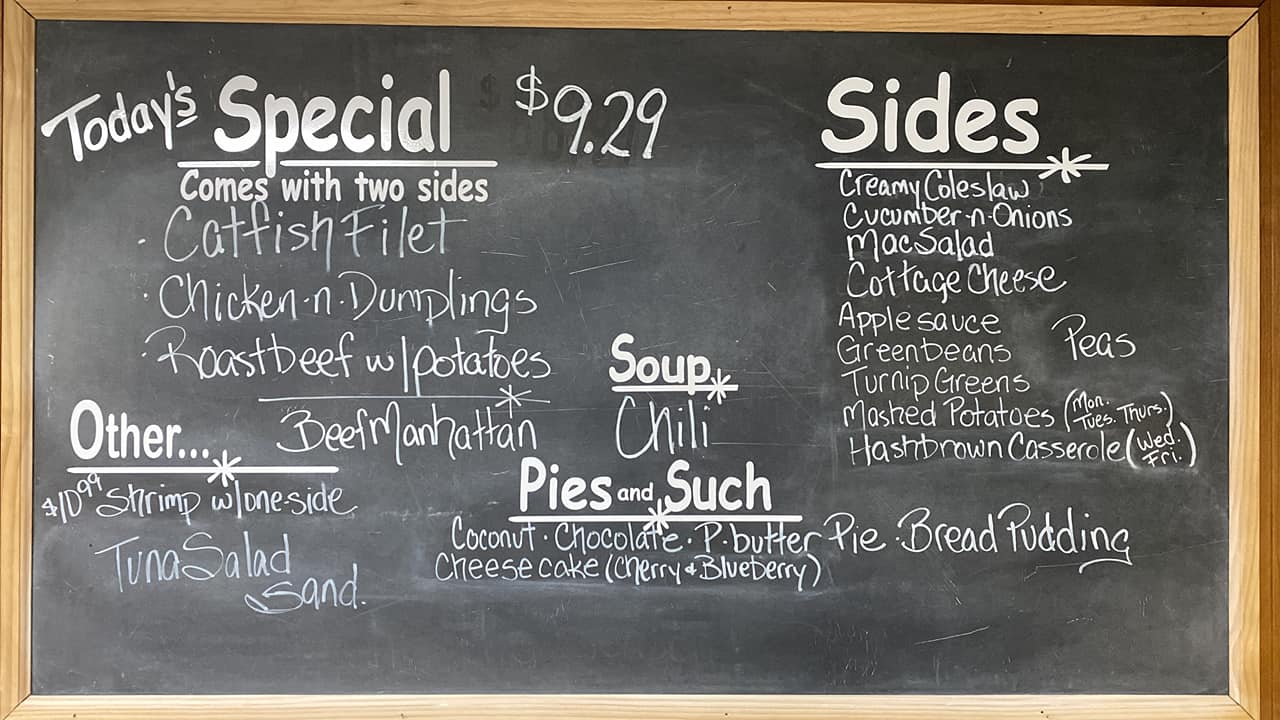 Today's Special $9.29
Comes with two sides
· Catfish Filet
· Chicken·n·Dumplings
· Roast beef w/potatoes
Beef Manhattan
Other...
$10.99 Shrimp w/one side
Tuna Salad
Sand.
Soup
Chili
Pies and Such
Coconut · Chocolate · P.butter Pie · Bread Pudding
Cheesecake (Cherry & Blueberry)
Sides
Creamy Coleslaw
Cucumber-n-Onions
Mac Salad
Cottage Cheese
Applesauce
Green beans
Peas
Turnip Greens
Mashed Potatoes (Mon. Tues. Thurs.)
Hashbrown Casserole (Wed. Fri.)